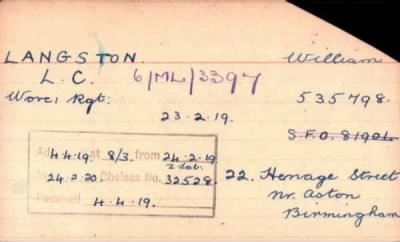 LANGSTON. William
L.C. 6/ML/3397
Worc: Rgt: 535798.
23.2.19.
S.F.O. 8190L
Ad 4.4.19. at 8/3. from 24.2.19
24.2.20. Chelsea No. 32528.
Received 4.4.19.
22. Henage Street
nr. Aston
Birmingham